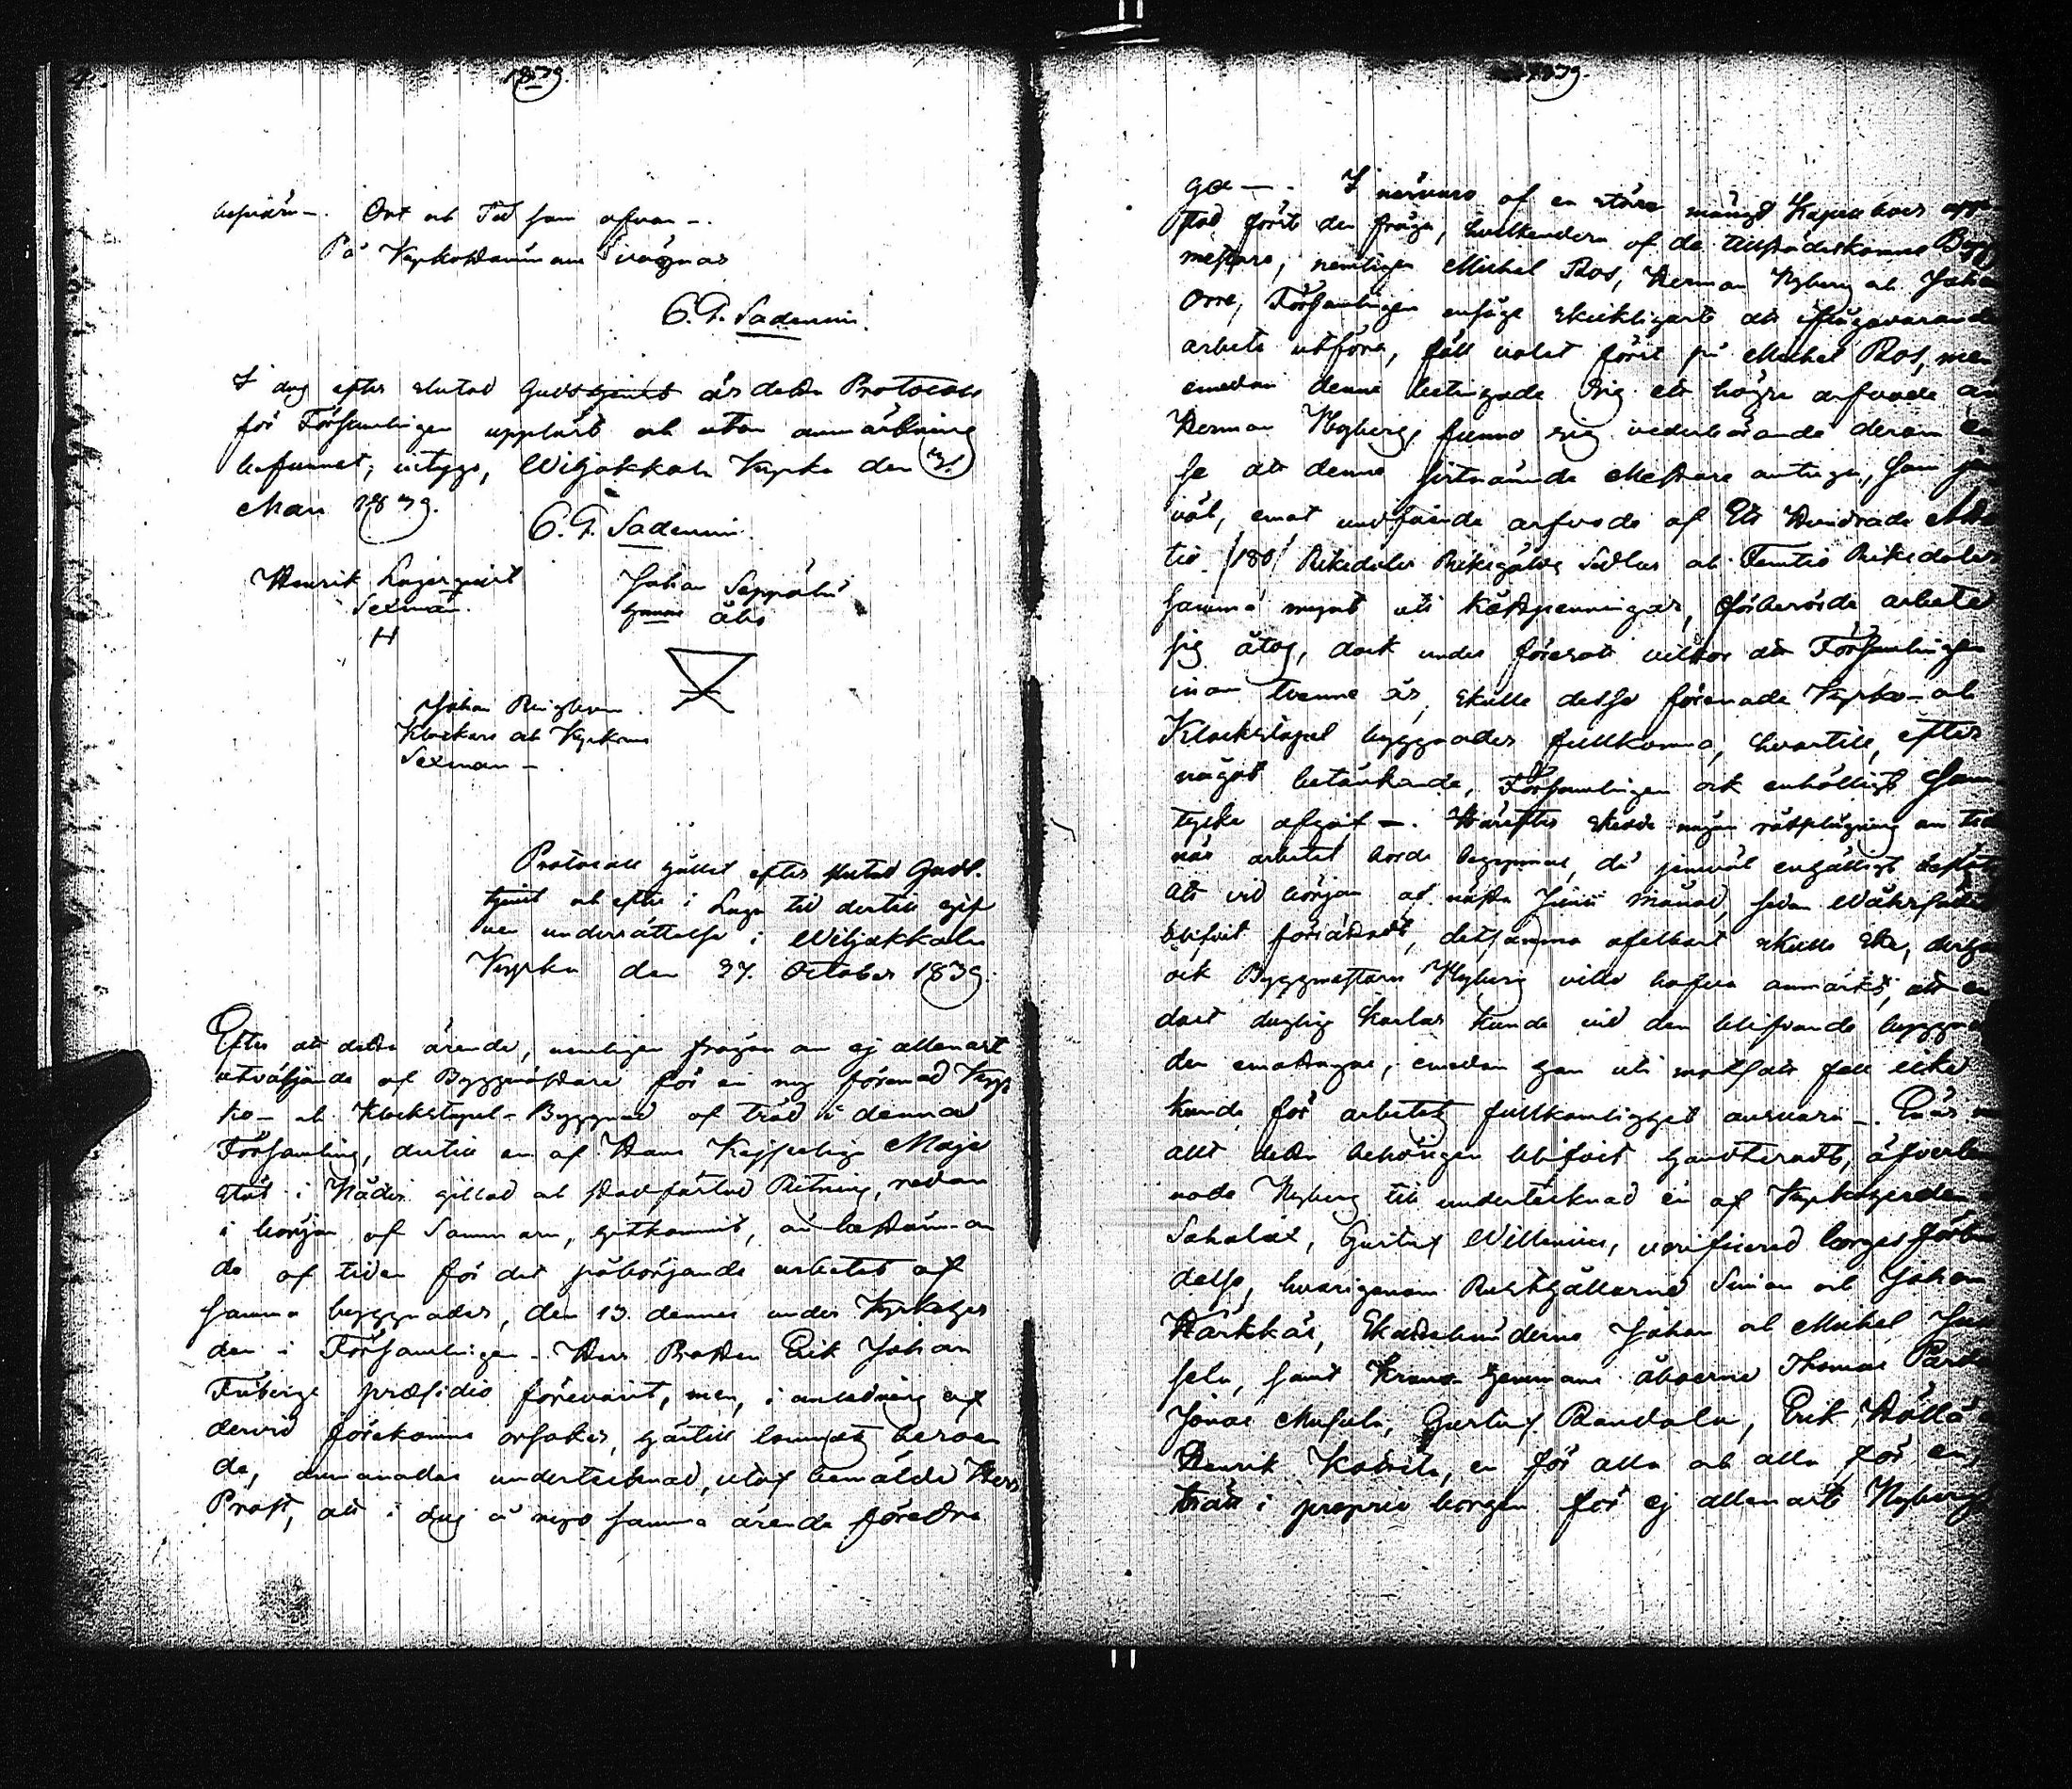 1839.
besvär –. Ort och Tid som ofvan –.
På Kyrkostämmans vägnar
C. G. Sadenius.
I dag efter slutad Gudstjenst är detta Protocoll
för Församlingen uppläst och utan anmärkning
befunnet; intygas, Wiljakkala Kyrka den 31
Mars 1839.
C. G. Sadenius.
Henrik Lagerqvist
Sexman.
H
Johan Seppälä
åbo
Johan Ringbom.
Klockare och Kyrkans
Sexman –
Protocoll hållet efter slutad Guds-
tjenst och efter i Laga tid dertill gif
ven underrättelse i Wiljakkala
Kyrka den 27. October 1839.
Efter att detta ärende, nemligen frågan om ej allenast
utväljande af Byggmästare för en ny förenad Kyr
ko- och Klockstapel-Byggnad af träd i denna
Församling, dertill en af Hans Kejserliga Maje
stät i Nåder gillad och stadfästad Ritning, redan
i början af Sommaren, hitkommit, än bestämman
de af tiden för det påbörjande arbetet af
samma byggnader, den 13 dennes under Kyrkoher
den i Församlingen – Herr Prosten Erik Johan
Fribergs præsidio förevarit, men, i anledning af
dervid förekomne orsaker, härtill lemnats beroen
de, anmanades undertecknad, utaf bemälde Herr
Prost, att i dag å nyo samma ärende företa
1839.
ga –. I närvaro af en större mängd Kapellboer upp
stod först den fråga, hvilkendera af de tillstädeskomne Bygg
mästare, nemligen Michel Ros, Herman Nyberg och Johan
Orre, Församlingen ansåge skickligast att ifrågavarande
arbete utföra, föll valet först på Michel Ros, men
emedan denne betingade sig ett högre arfvode än
Herman Nyberg, funno sig vederbörande derom
se att denne sistnämnde Mästare antaga, som jem
väl, emot undfående arfvode af Ett Hundrade Åtta
tio /180/ Riksdaler Riksgälds Sedlar och Femtio Riksdaler
samma mynt uti Kostpenningar, förberörde arbete
sig åtog, dock under föresatt vilkor att Församlingen
inom tvenne år, skulle desse förenade Kyrko- och
Klockstapel byggnader fullkomna, hvartill, efter
något betänkande, Församlingen ock enhälligt sam
tycke afgaf –. Härefter skedde någon rådplägning om tid
när arbetet borde begynnas, då jemväl enhälligt
att vid början af nästa Junii månad, sedan Wårsådden
blifvit förrättadt, detsamma ofelbart skulle ske,
ock Byggmästaren Nyberg ville hafva anmärkt, att en
dast duglige karlar kunde vid den blifvande byggna
den emottagas, emedan han uti motsatt fall icke
kunde för arbetet fullkomligget ansvara –.
allt detta behörigen blifvit handteradt, öfverlem
nade Nyberg till undertecknad en af Kyrkoherden
Sahalax, Gustaf Willenius, verificerad borgesförbin
delse, hvarigenom Rusthållarne Simon och Johan
Härkkäs, Skattebönderne Johan och Michel
sela, samt Krono hemmans åboerne Thomas
Jonas Mufula, Gustaf Randala, Erik
Henrik Kobrita, en för alla och alla för en,
trädt i proprie borgen för ej allenast Nybergs